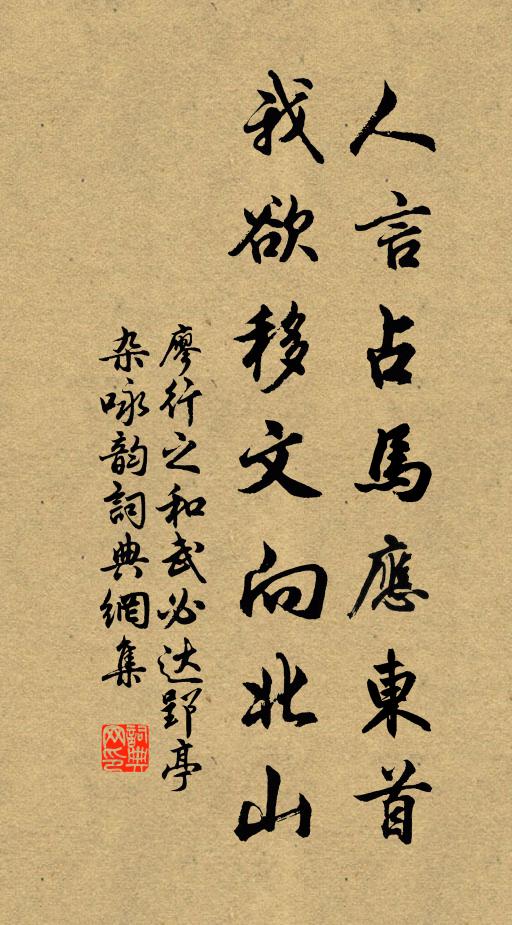 人言占馬應東首
我欲移文向北山
廖行之和武必达郢亭
杂咏韵詞典網集
詞典網印